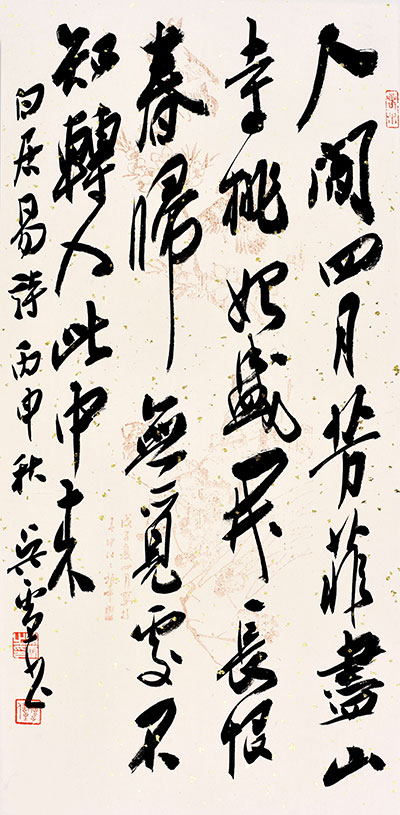 人間四月芳菲盡山
寺桃始盛開長恨
春歸無覓處不
知轉入此中來
白居易詩丙申秋雪书